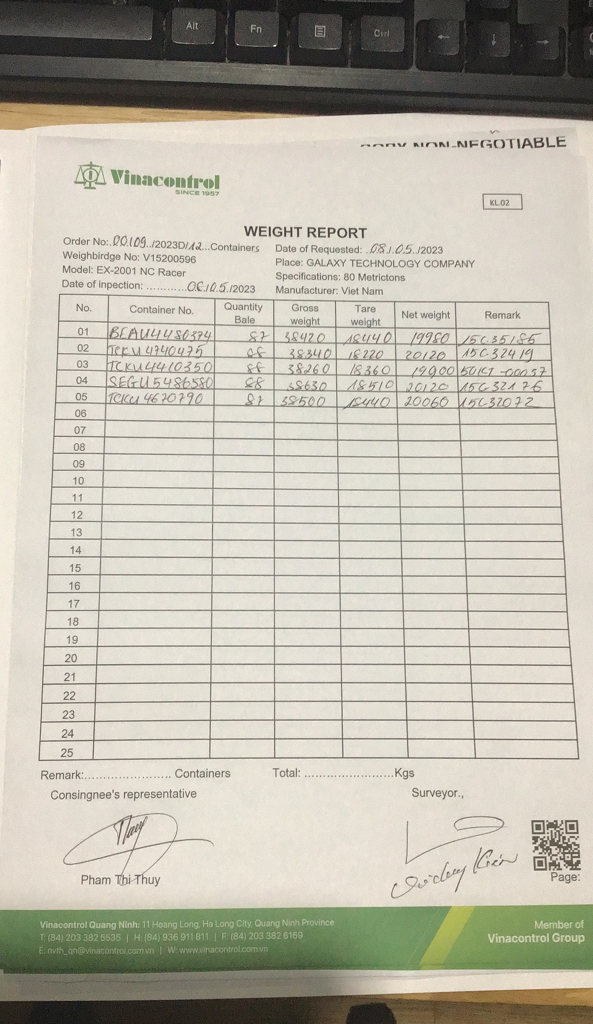 Alt Fn Ctrl
COPY NON-NEGOTIABLE
Vinacontrol
SINCE 1957
KL.02
WEIGHT REPORT
Order No: 00109../2023D/12...Containers Date of Requested: .08.1.05../2023
Weighbirdge No: V15200596 Place: GALAXY TECHNOLOGY COMPANY
Model: EX-2001 NC Racer Specifications: 80 Metrictons
Date of inpection: ............06.10.5./2023 Manufacturer: Viet Nam
No. Container No. Quantity Bale Gross weight Tare weight Net weight Remark
01 BEAU4480374 87 38420 18440 19980 15C.35185
02 TCKU4740475 88 38340 18220 20120 15C32419
03 TCKU4410350 88 38260 18360 19900
04 SEGU5486580 88 38630 18510 20120 15C32176
05 TCKU4670790 87 38500 18440 20060 15C32072
06
07
08
09
10
11
12
13
14
15
16
17
18
19
20
21
22
23
24
25
Remark:...................... Containers Total: .......................Kgs
Consingnee's representative Surveyor.,
Thuy
Pham Thi Thuy
Page:
Vinacontrol Quang Ninh: 11 Hoang Long, Ha Long City, Quang Ninh Province
T: (84) 203 382 5635 | H: (84) 936 911 811 | F: (84) 203 382 6169
E: nvth_qn@vinacontrol.com.vn | W: www.vinacontrol.com.vn
Member of
Vinacontrol Group